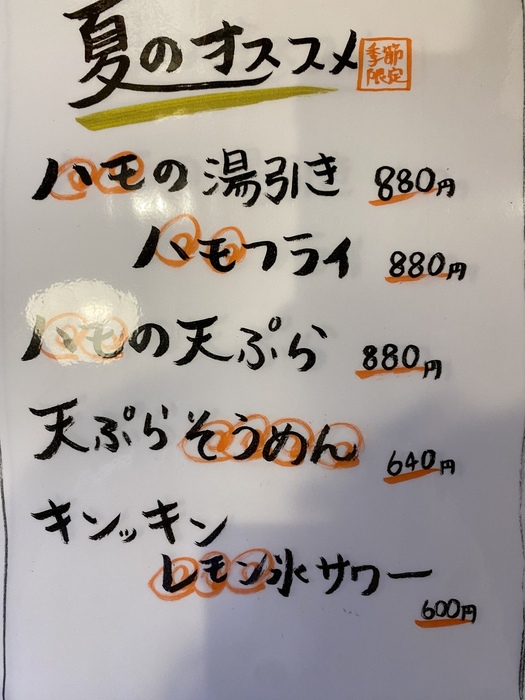 夏のオススメ 季節限定
ハモの湯引き 880円
ハモフライ 880円
ハモの天ぷら 880円
天ぷらそうめん 640円
キンッキン
レモン氷サワー
600円